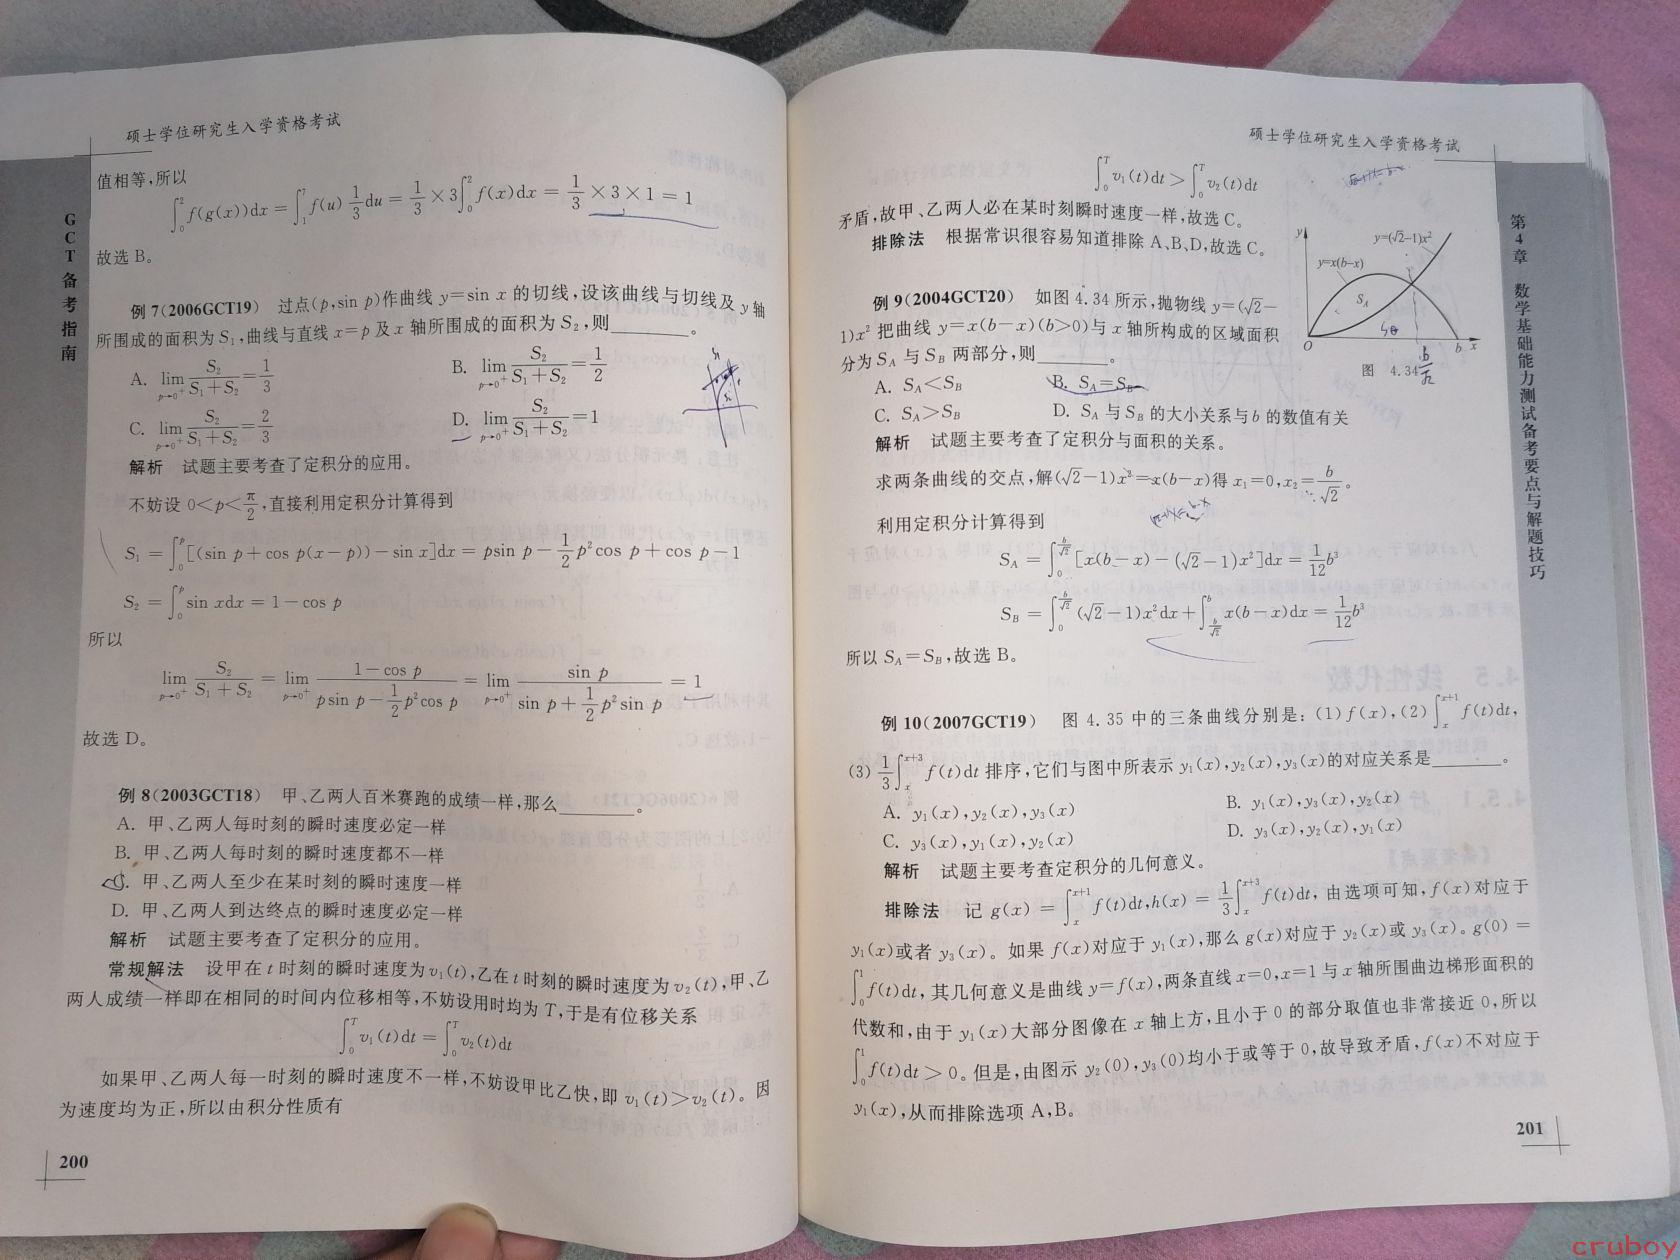 硕士学位研究生入学资格考试
GCT备考指南
值相等,所以
∫₀² f(g(x))dx = ∫₁⁷ f(u) 1/3 du = 1/3 × 3∫₀² f(x)dx = 1/3 × 3 × 1 = 1
故选 B。
例 7(2006GCT19) 过点(p,sin p)作曲线 y=sin x 的切线,设该曲线与切线及 y 轴
所围成的面积为 S₁,曲线与直线 x=p 及 x 轴所围成的面积为 S₂,则________。
A. lim p→0⁺ S₂/(S₁+S₂) = 1/3 B. lim p→0⁺ S₂/(S₁+S₂) = 1/2
C. lim p→0⁺ S₂/(S₁+S₂) = 2/3 D. lim p→0⁺ S₂/(S₁+S₂) = 1
解析 试题主要考查了定积分的应用。
不妨设 0<p<π/2,直接利用定积分计算得到
S₁ = ∫₀ᵖ [(sin p + cos p(x − p)) − sin x]dx = psin p − 1/2 p² cos p + cos p − 1
S₂ = ∫₀ᵖ sin xdx = 1 − cos p
所以
lim p→0⁺ S₂/(S₁ + S₂) = lim p→0⁺ (1 − cos p)/(psin p − 1/2 p² cos p) = lim p→0⁺ sin p/(sin p + 1/2 p² sin p) = 1
故选 D。
例 8(2003GCT18) 甲、乙两人百米赛跑的成绩一样,那么________。
A. 甲、乙两人每时刻的瞬时速度必定一样
B. 甲、乙两人每时刻的瞬时速度都不一样
C. 甲、乙两人至少在某时刻的瞬时速度一样
D. 甲、乙两人到达终点的瞬时速度必定一样
解析 试题主要考查了定积分的应用。
常规解法 设甲在 t 时刻的瞬时速度为 v₁(t),乙在 t 时刻的瞬时速度为 v₂(t),甲、乙
两人成绩一样即在相同的时间内位移相等,不妨设用时均为 T,于是有位移关系
∫₀ᵀ v₁(t)dt = ∫₀ᵀ v₂(t)dt
如果甲、乙两人每一时刻的瞬时速度不一样,不妨设甲比乙快,即 v₁(t)>v₂(t)。因
为速度均为正,所以由积分性质有
200
硕士学位研究生入学资格考试
第4章 数学基础能力测试备考要点与解题技巧
∫₀ᵀ v₁(t)dt > ∫₀ᵀ v₂(t)dt
矛盾,故甲、乙两人必在某时刻瞬时速度一样,故选 C。
排除法 根据常识很容易知道排除 A、B、D,故选 C。
y
y=(√2−1)x²
y=x(b−x)
S_A
S_B
O
b x
b/√2
图 4.34
例 9(2004GCT20) 如图 4.34 所示,抛物线 y=(√2−
1)x² 把曲线 y=x(b−x)(b>0)与 x 轴所构成的区域面积
分为 S_A 与 S_B 两部分,则________。
A. S_A<S_B B. S_A=S_B
C. S_A>S_B D. S_A 与 S_B 的大小关系与 b 的数值有关
解析 试题主要考查了定积分与面积的关系。
求两条曲线的交点,解(√2−1)x²=x(b−x)得 x₁=0,x₂=b/√2。
利用定积分计算得到
S_A = ∫₀^(b/√2) [x(b − x) − (√2 − 1)x²]dx = 1/12 b³
S_B = ∫₀^(b/√2) (√2 − 1)x²dx + ∫_(b/√2)^b x(b − x)dx = 1/12 b³
所以 S_A=S_B,故选 B。
例 10(2007GCT19) 图 4.35 中的三条曲线分别是: (1) f(x),(2) ∫ₓ^(x+1) f(t)dt,
(3) 1/3 ∫ₓ^(x+3) f(t)dt 排序,它们与图中所表示 y₁(x),y₂(x),y₃(x)的对应关系是________。
A. y₁(x),y₂(x),y₃(x) B. y₁(x),y₃(x),y₂(x)
C. y₃(x),y₁(x),y₂(x) D. y₃(x),y₂(x),y₁(x)
解析 试题主要考查定积分的几何意义。
排除法 记 g(x) = ∫ₓ^(x+1) f(t)dt,h(x) = 1/3 ∫ₓ^(x+3) f(t)dt, 由选项可知,f(x)对应于
y₁(x)或者 y₃(x)。如果 f(x)对应于 y₁(x),那么 g(x)对应于 y₂(x)或 y₃(x)。g(0) =
∫₀¹ f(t)dt, 其几何意义是曲线 y=f(x),两条直线 x=0,x=1 与 x 轴所围曲边梯形面积的
代数和,由于 y₁(x)大部分图像在 x 轴上方,且小于 0 的部分取值也非常接近 0,所以
∫₀¹ f(t)dt > 0。但是,由图示 y₂(0),y₃(0)均小于或等于 0,故导致矛盾,f(x)不对应于
y₁(x),从而排除选项 A,B。
201
cruboy